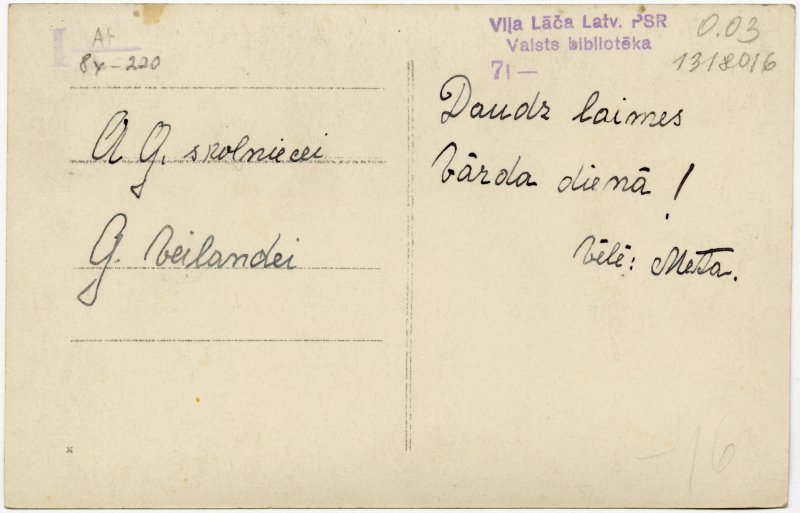 At
8x-220
A G. skolniecei
G. Veilandei
Viļa Lāča Latv. PSR
Valsts bibliotēka
71 —
0.03
1318016
Daudz laimes
Vārda dienā !
Vēlē: Metta.
-16